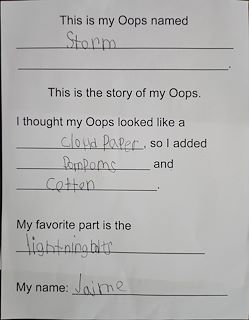 This is my Oops named
Storm
.
This is the story of my Oops.
I thought my Oops looked like a
cloud paper, so I added
Pompoms and
cotten.
My favorite part is the
lightningbolts
My name: Jaime